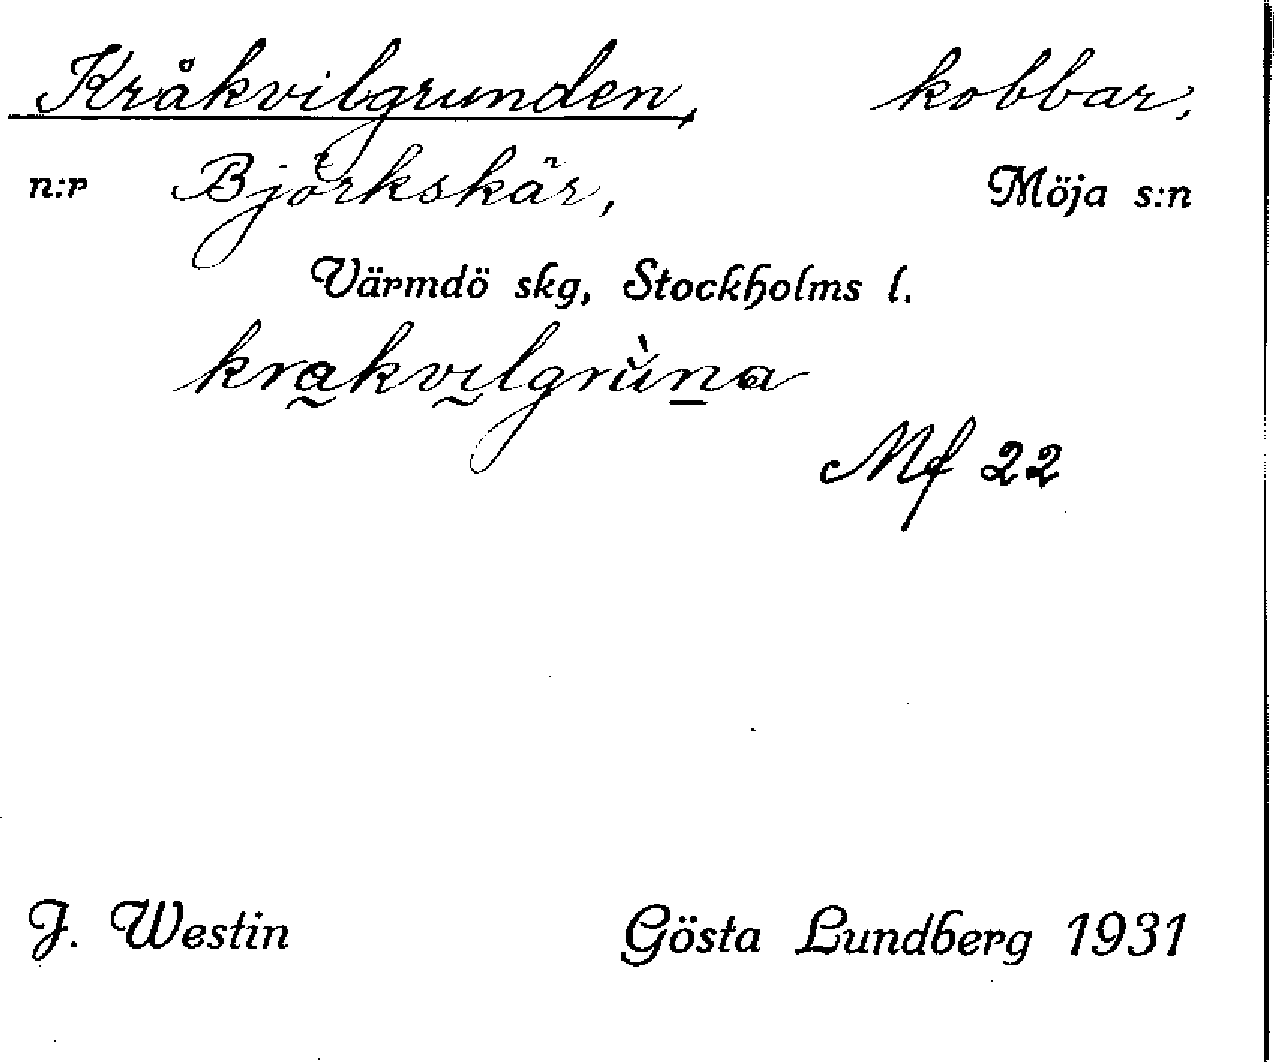 Kråkvilgrunden, kobbar,
n:r Björkskär, Möja s:n
Värmdö skg, Stockholms l.
kra̰kvḭlgrùn̲a
Mf 22
J. Westin Gösta Lundberg 1931